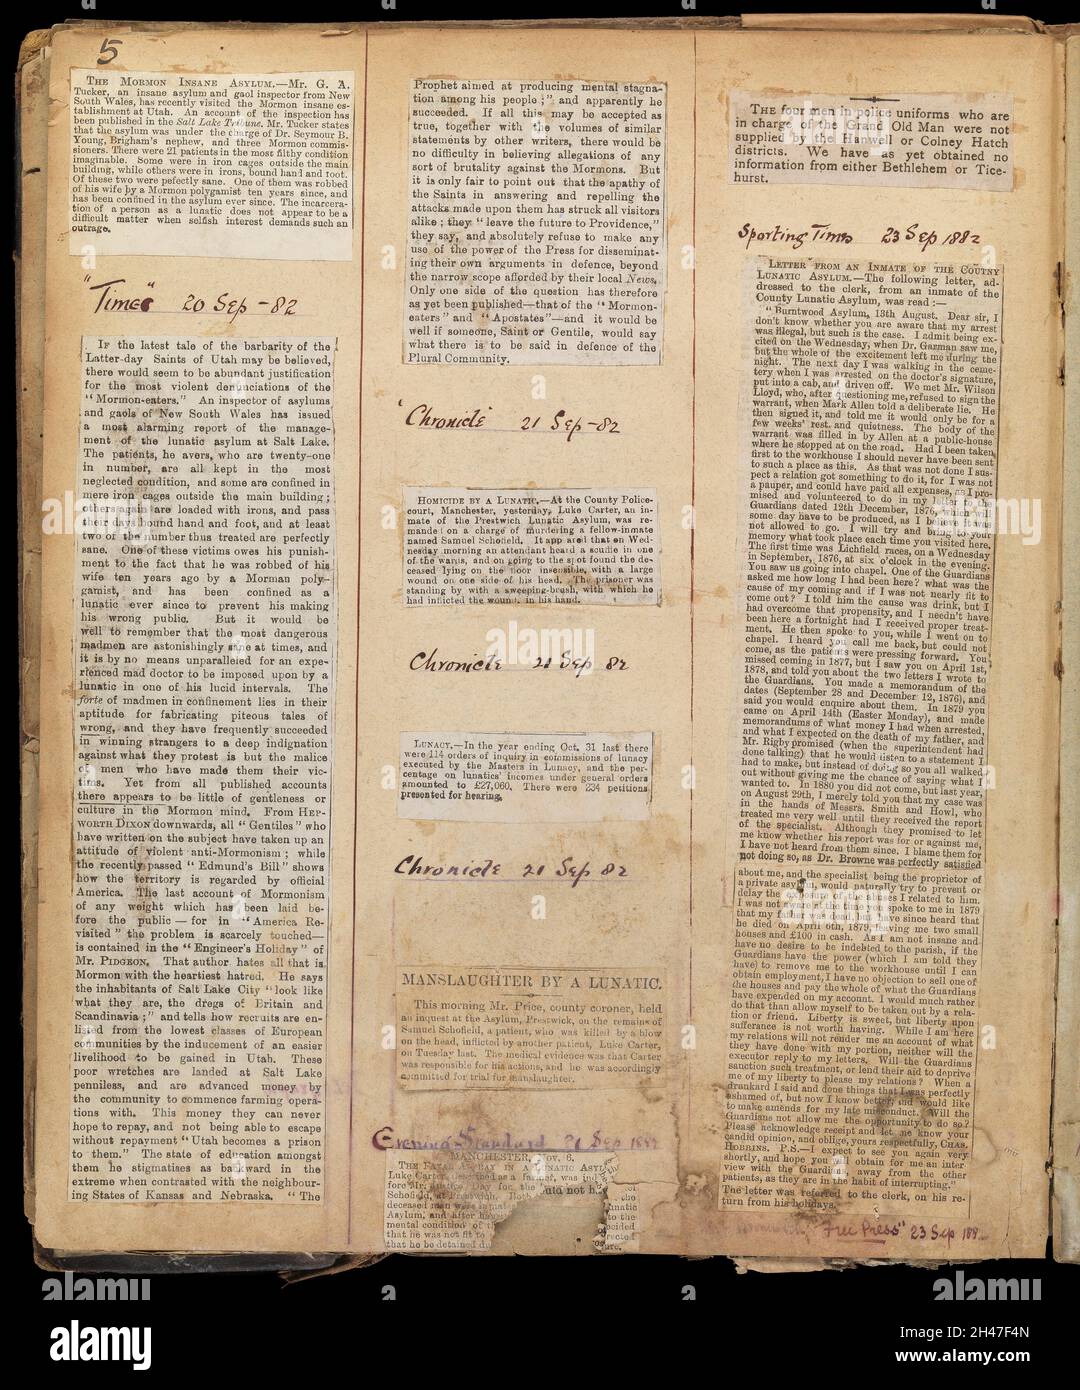 5
THE MORMON INSANE ASYLUM.—Mr. G. A.
Tucker, an insane asylum and gaol inspector from New
South Wales, has recently visited the Mormon insane es-
tablishment at Utah. An account of the inspection has
been published in the Salt Lake Tribune. Mr. Tucker states
that the asylum was under the charge of Dr. Seymour B.
Young, Brigham's nephew, and three Mormon commis-
sioners. There were 21 patients in the most filthy condition
imaginable. Some were in iron cages outside the main
building, while others were in irons, bound hand and foot.
Of these two were pefectly sane. One of them was robbed
of his wife by a Mormon polygamist ten years since, and
has been confined in the asylum ever since. The incarcera-
tion of a person as a lunatic does not appear to be a
difficult matter when selfish interest demands such an
outrage.
"Times" 20 Sep -82
IF the latest tale of the barbarity of the
Latter-day Saints of Utah may be believed,
there would seem to be abundant justification
for the most violent denunciations of the
"Mormon-eaters." An inspector of asylums
and gaols of New South Wales has issued
a most alarming report of the manage-
ment of the lunatic asylum at Salt Lake.
The patients, he avers, who are twenty-one
in number, are all kept in the most
neglected condition, and some are confined in
mere iron cages outside the main building;
others again are loaded with irons, and pass
their days bound hand and foot, and at least
two of the number thus treated are perfectly
sane. One of these victims owes his punish-
ment to the fact that he was robbed of his
wife ten years ago by a Morman poly-
gamist, and has been confined as a
lunatic ever since to prevent his making
his wrong public. But it would be
well to remember that the most dangerous
madmen are astonishingly sane at times, and
it is by no means unparalleled for an expe-
rienced mad doctor to be imposed upon by a
lunatic in one of his lucid intervals. The
forte of madmen in confinement lies in their
aptitude for fabricating piteous tales of
wrong, and they have frequently succeeded
in winning strangers to a deep indignation
against what they protest is but the malice
of men who have made them their vic-
tims. Yet from all published accounts
there appears to be little of gentleness or
culture in the Mormon mind. From HEP-
WORTH DIXON downwards, all "Gentiles" who
have written on the subject have taken up an
attitude of violent anti-Mormonism; while
the recently passed "Edmund's Bill" shows
how the territory is regarded by official
America. The last account of Mormonism
of any weight which has been laid be-
fore the public—for in "America Re-
visited" the problem is scarcely touched—
is contained in the "Engineer's Holiday" of
Mr. PIDGEON. That author hates all that is
Mormon with the heartiest hatred. He says
the inhabitants of Salt Lake City "look like
what they are, the dregs of Britain and
Scandinavia;" and tells how recruits are en-
listed from the lowest classes of European
communities by the inducement of an easier
livelihood to be gained in Utah. These
poor wretches are landed at Salt Lake
penniless, and are advanced money by
the community to commence farming opera-
tions with. This money they can never
hope to repay, and not being able to escape
without repayment "Utah becomes a prison
to them." The state of education amongst
them he stigmatises as backward in the
extreme when contrasted with the neighbour-
ing States of Kansas and Nebraska. "The
Prophet aimed at producing mental stagna-
tion among his people;" and apparently he
succeeded. If all this may be accepted as
true, together with the volumes of similar
statements by other writers, there would be
no difficulty in believing allegations of any
sort of brutality against the Mormons. But
it is only fair to point out that the apathy of
the Saints in answering and repelling the
attacks made upon them has struck all visitors
alike; they "leave the future to Providence,"
they say, and absolutely refuse to make any
use of the power of the Press for disseminat-
ing their own arguments in defence, beyond
the narrow scope afforded by their local News.
Only one side of the question has therefore
as yet been published—that of the "Mormon-
eaters" and "Apostates"—and it would be
well if someone, Saint or Gentile, would say
what there is to be said in defence of the
Plural Community.
"Chronicle" 21 Sep -82
HOMICIDE BY A LUNATIC.—At the County Police-
court, Manchester, yesterday, Luke Carter, an in-
mate of the Prestwich Lunatic Asylum, was re-
manded on a charge of murdering a fellow-inmate
named Samuel Schofield. It appeared that on Wed-
nesday morning an attendant heard a scuffle in one
of the wards, and on going to the spot found the de-
ceased lying on the floor insensible, with a large
wound on one side of his head. The prisoner was
standing by with a sweeping-brush, with which he
had inflicted the wound, in his hand.
Chronicle 21 Sep 82
LUNACY.—In the year ending Oct. 31 last there
were 114 orders of inquiry in commissions of lunacy
executed by the Masters in Lunacy, and the per-
centage on lunatics' incomes under general orders
amounted to £27,060. There were 234 petitions
presented for hearing.
Chronicle 21 Sep 82
MANSLAUGHTER BY A LUNATIC.
This morning Mr. Price, county coroner, held
an inquest at the Asylum, Prestwick, on the remains of
Samuel Schofield, a patient, who was killed by a blow
on the head, inflicted by another patient, Luke Carter,
on Tuesday last. The medical evidence was that Carter
was responsible for his actions, and he was accordingly
committed for trial for manslaughter.
Evening Standard 21 Sep 1882
MANCHESTER, Nov. 6.
THE FATAL AFFRAY IN A LUNATIC ASYL
Luke Carter, described as a farmer, was ind
Schofield, at Prestwich. Both
deceased men were inmates
Asylum, and after
mental condition of
that he was not fit to
that he be detained du
THE four men in police uniforms who are
in charge of the Grand Old Man were not
supplied by the Hanwell or Colney Hatch
districts. We have as yet obtained no
information from either Bethlehem or Tice-
hurst.
Sporting Times 23 Sep 1882
LETTER FROM AN INMATE OF THE COUTNY
LUNATIC ASYLUM.—The following letter, ad-
dressed to the clerk, from an inmate of the
County Lunatic Asylum, was read:—
"Burntwood Asylum, 13th August. Dear sir, I
don't know whether you are aware that my arrest
was illegal, but such is the case. I admit being ex-
cited on the Wednesday, when Dr. Gazman saw me,
but the whole of the excitement left me during the
night. The next day I was walking in the ceme-
tery when I was arrested on the doctor's signature,
put into a cab, and driven off. We met Mr. Wilson
Lloyd, who, after questioning me, refused to sign the
warrant, when Mark Allen told a deliberate lie. He
then signed it, and told me it would only be for a
few weeks' rest and quietness. The body of the
warrant was filled in by Allen at a public-house
where he stopped at on the road. Had I been taken
first to the workhouse I should never have been sent
to such a place as this. As that was not done I sus-
pect a relation got something to do it, for I was not
a pauper, and could have paid all expenses, as I pro-
mised and volunteered to do in my letter to the
Guardians dated 12th December, 1876, which will
some day have to be produced, as I believe it was
not allowed to go. I will try and bring to your
memory what took place each time you visited here.
The first time was Lichfield races, on a Wednesday
in September, 1876, at six o'clock in the evening.
You saw us going into chapel. One of the Guardians
asked me how long I had been here? what was the
cause of my coming and if I was not nearly fit to
come out? I told him the cause was drink, but I
had overcome that propensity, and I needn't have
been here a fortnight had I received proper treat-
ment. He then spoke to you, while I went on to
chapel. I heard you call me back, but could not
come, as the patients were pressing forward. You
missed coming in 1877, but I saw you on April 1st,
1878, and told you about the two letters I wrote to
the Guardians. You made a memorandum of the
dates (September 28 and December 12, 1876), and
said you would enquire about them. In 1879 you
came on April 14th (Easter Monday), and made
memorandums of what money I had when arrested,
and what I expected on the death of my father, and
Mr. Rigby promised (when the superintendent had
done talking) that he would listen to a statement I
had to make, but instead of doing so you all walked
out without giving me the chance of saying what I
wanted to. In 1880 you did not come, but last year,
on August 29th, I merely told you that my case was
in the hands of Messrs. Smith and Howl, who
treated me very well until they received the report
of the specialist. Although they promised to let
me know whether his report was for or against me,
I have not heard from them since. I blame them for
not doing so, as Dr. Browne was perfectly satisfied
about me, and the specialist being the proprietor of
a private asylum, would naturally try to prevent or
delay the exposure of the abuses I related to him.
I was not aware at the time you spoke to me in 1879
that my father was dead, but have since heard that
he died on April 6th, 1879, leaving me two small
houses and £100 in cash. As I am not insane and
have no desire to be indebted to the parish, if the
Guardians have the power (which I am told they
have) to remove me to the workhouse until I can
obtain employment, I have no objection to sell one of
the houses and pay the whole of what the Guardians
have expended on my account. I would much rather
do that than allow myself to be taken out by a rela-
tion or friend. Liberty is sweet, but liberty upon
sufferance is not worth having. While I am here
my relations will not render me an account of what
they have done with my portion, neither will the
executor reply to my letters. Will the Guardians
sanction such treatment, or lend their aid to deprive
me of my liberty to please my relations? When a
drunkard I said and done things that I was perfectly
ashamed of, but now I know better, and would like
to make amends for my late misconduct. Will the
Guardians not allow me the opportunity to do so?
Please acknowledge receipt and let me know your
candid opinion, and oblige, yours respectfully, CHAS.
HOBBINS. P.S.—I expect to see you again very
shortly, and hope you will obtain for me an inter-
view with the Guardians, away from the other
patients, as they are in the habit of interrupting."
The letter was referred to the clerk, on his re-
turn from his holidays.
Free Press" 23 Sep 188
alamy
Image ID: 2H47F4N
www.alamy.com